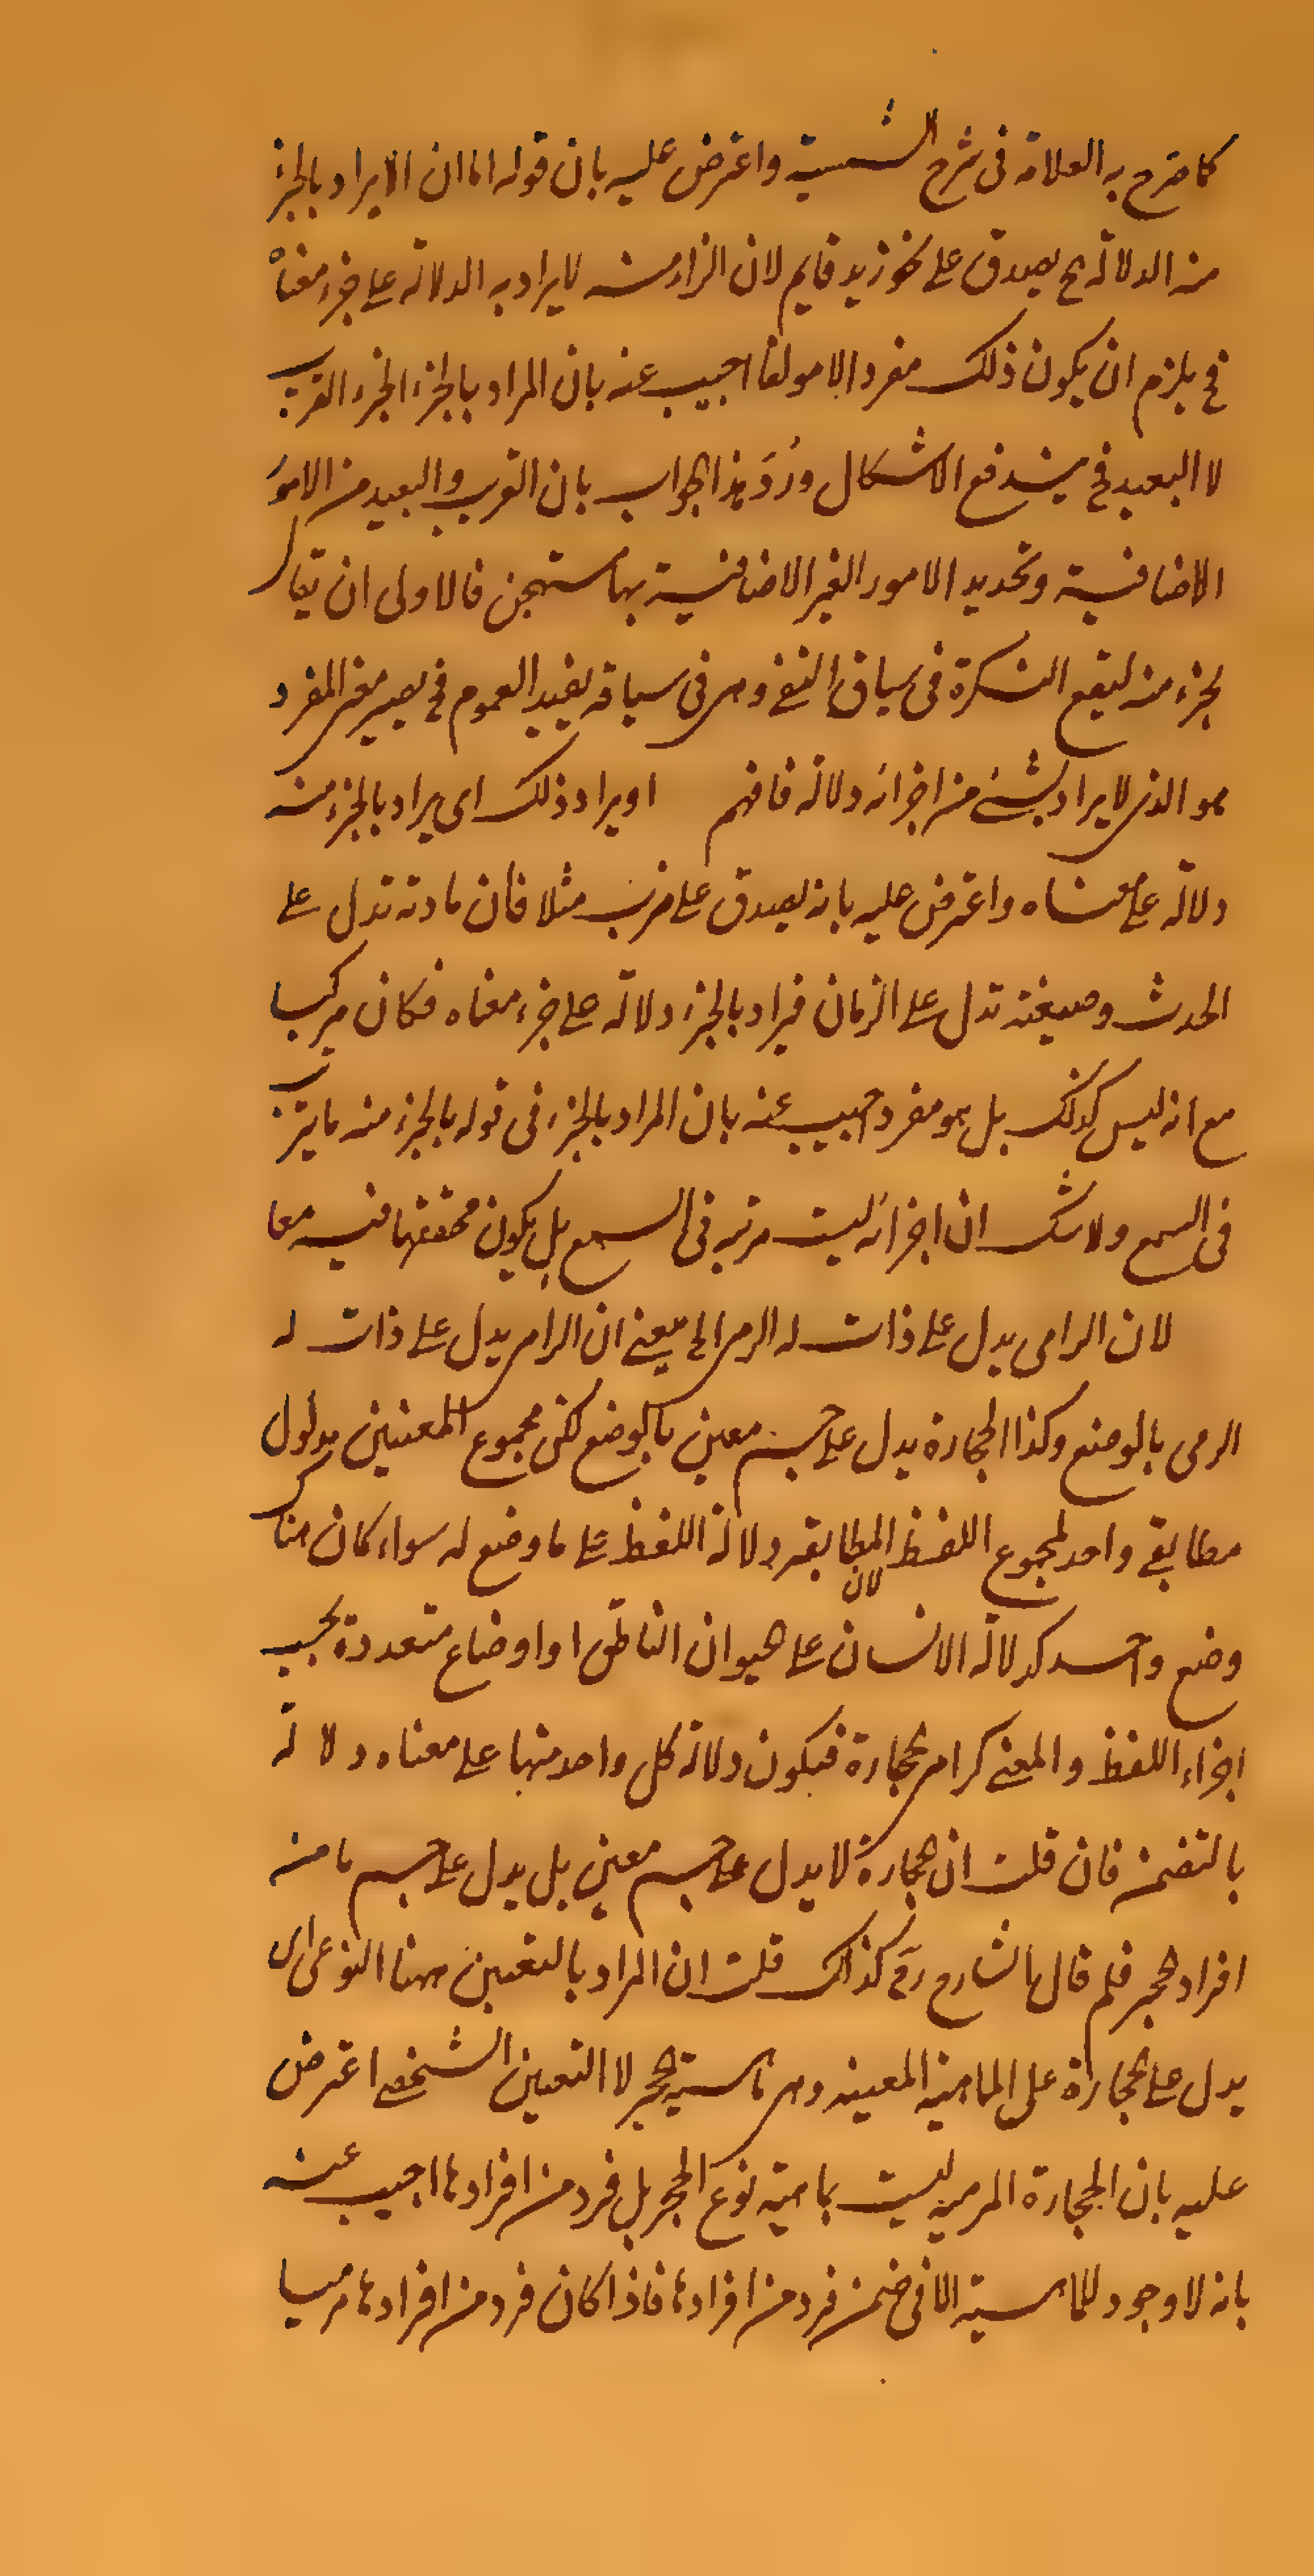 كما صرح به العلامة فى شرح الشمسية واعترض عليه بان قوله اما ان لا يراد بالجزء
منه الدلالة ح يصدق على نحو زيد قايم لان الزاء منه لا يراد به الدلالة على جزء معناه
فح يلزم ان يكون ذلك مفردا لا مولفا اجيب عنه بان المراد بالجزء الجزء القريب
لا البعيد فح يندفع الاشكال ورُدَّ هذا الجواب بان القرب والبعيد من الامور
الاضافية وتحديد الامور الغير الاضافية بها مستهجن فالاولى ان يقال
بجزء منه ليقع النكرة فى سياق النفى وهى فى سياقه يفيد العموم فح يصير معنى المفرد
هو الذى لا يراد بشئ من اجزائه دلالة فافهم او يراد ذلك اى يراد بالجزء منه
دلالة على معناه واعترض عليه بانه يصدق على ضرب مثلا فان مادته تدل على
الحدث وصيغته تدل على الزمان فيراد بالجزء دلالة على جزء معناه فكان مركبا
مع انه ليس كذلك بل هو مفرد اجيب عنه بان المراد بالجزء فى قوله بالجزء منه ما يترتب
فى السمع ولا شك ان اجزائه ليست مرتبه فى السمع بل يكون محققها فيه معا
لان الرامى يدل على ذات له الرمى الخ يعنى ان الرامى يدل على ذات له
الرمى بالوضع وكذا الحجارة يدل على جسم معين بالوضع لكن مجموع المعنيين مدلول
مطابقى واحد لمجموع اللفظ لان المطابقه دلالة اللفظ على ما وضع له سواء كان هناك
وضع واحد كدلالة الانسان على حيوان الناطق او اوضاع متعددة بحسب
اجزاء اللفظ والمعنى كرامى حجارة فيكون دلالة كل واحد منها على معناه دلالة
بالتضمن فان قلت ان حجارة لا يدل على جسم معين بل يدل على جسم ما من
افراد حجر فلم قال الشارح رح كذلك قلت ان المراد بالتعين ههنا النوعى اى
يدل على حجارة على الماهية المعينه وهى ماهية حجر لا التعين الشخصى اعترض
عليه بان الحجارة المرميه ليست بماهية نوع الحجر بل فرد من افرادها اجيب عنه
بانه لا وجود للماهية الا فى ضمن فرد من افرادها فاذا كان فرد من افرادها مرميا